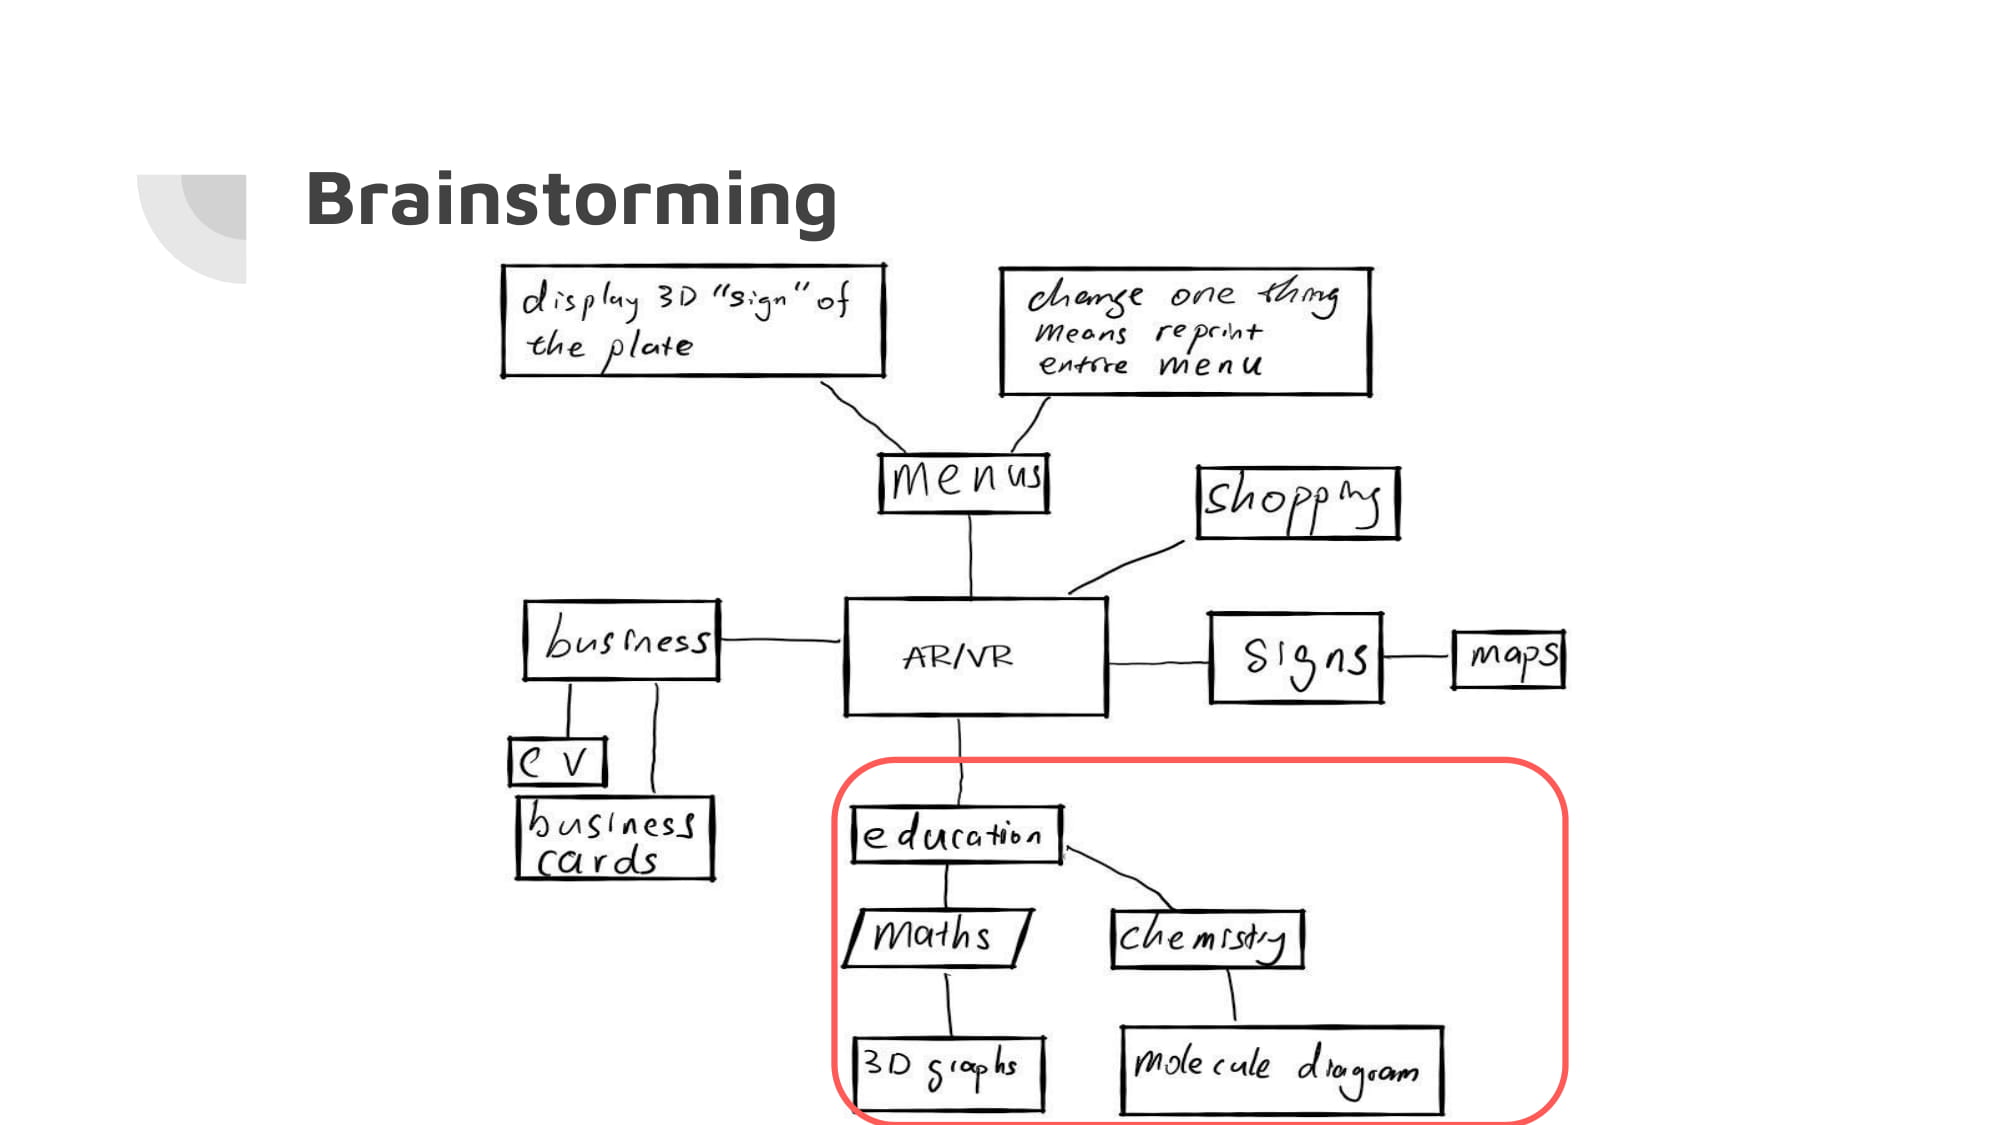 Brainstorming
display 3D "sign" of
the plate
change one thing
means reprint
entire menu
menus
shopping
business
AR/VR
signs
maps
CV
business
cards
education
maths
chemistry
3D graphs
molecule diagram